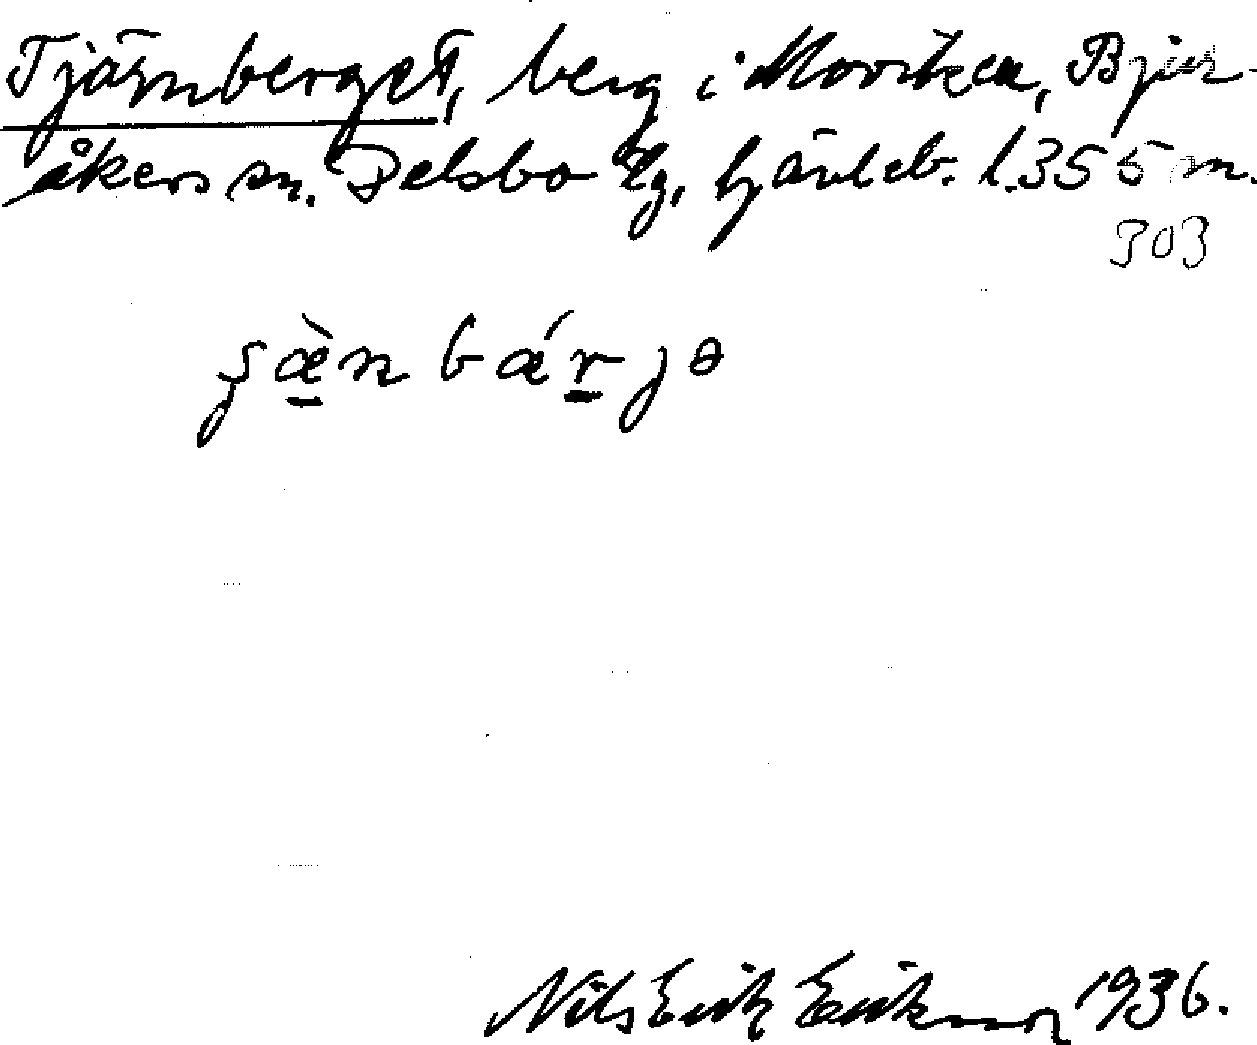 Tjärnberget, berg i Moviken, Bjur-
åkers sn. Delsbo tg, Gävleb. l. 355 m.
303
ʂæ̀n bárjə
Nils Erik Eriksson 1936.